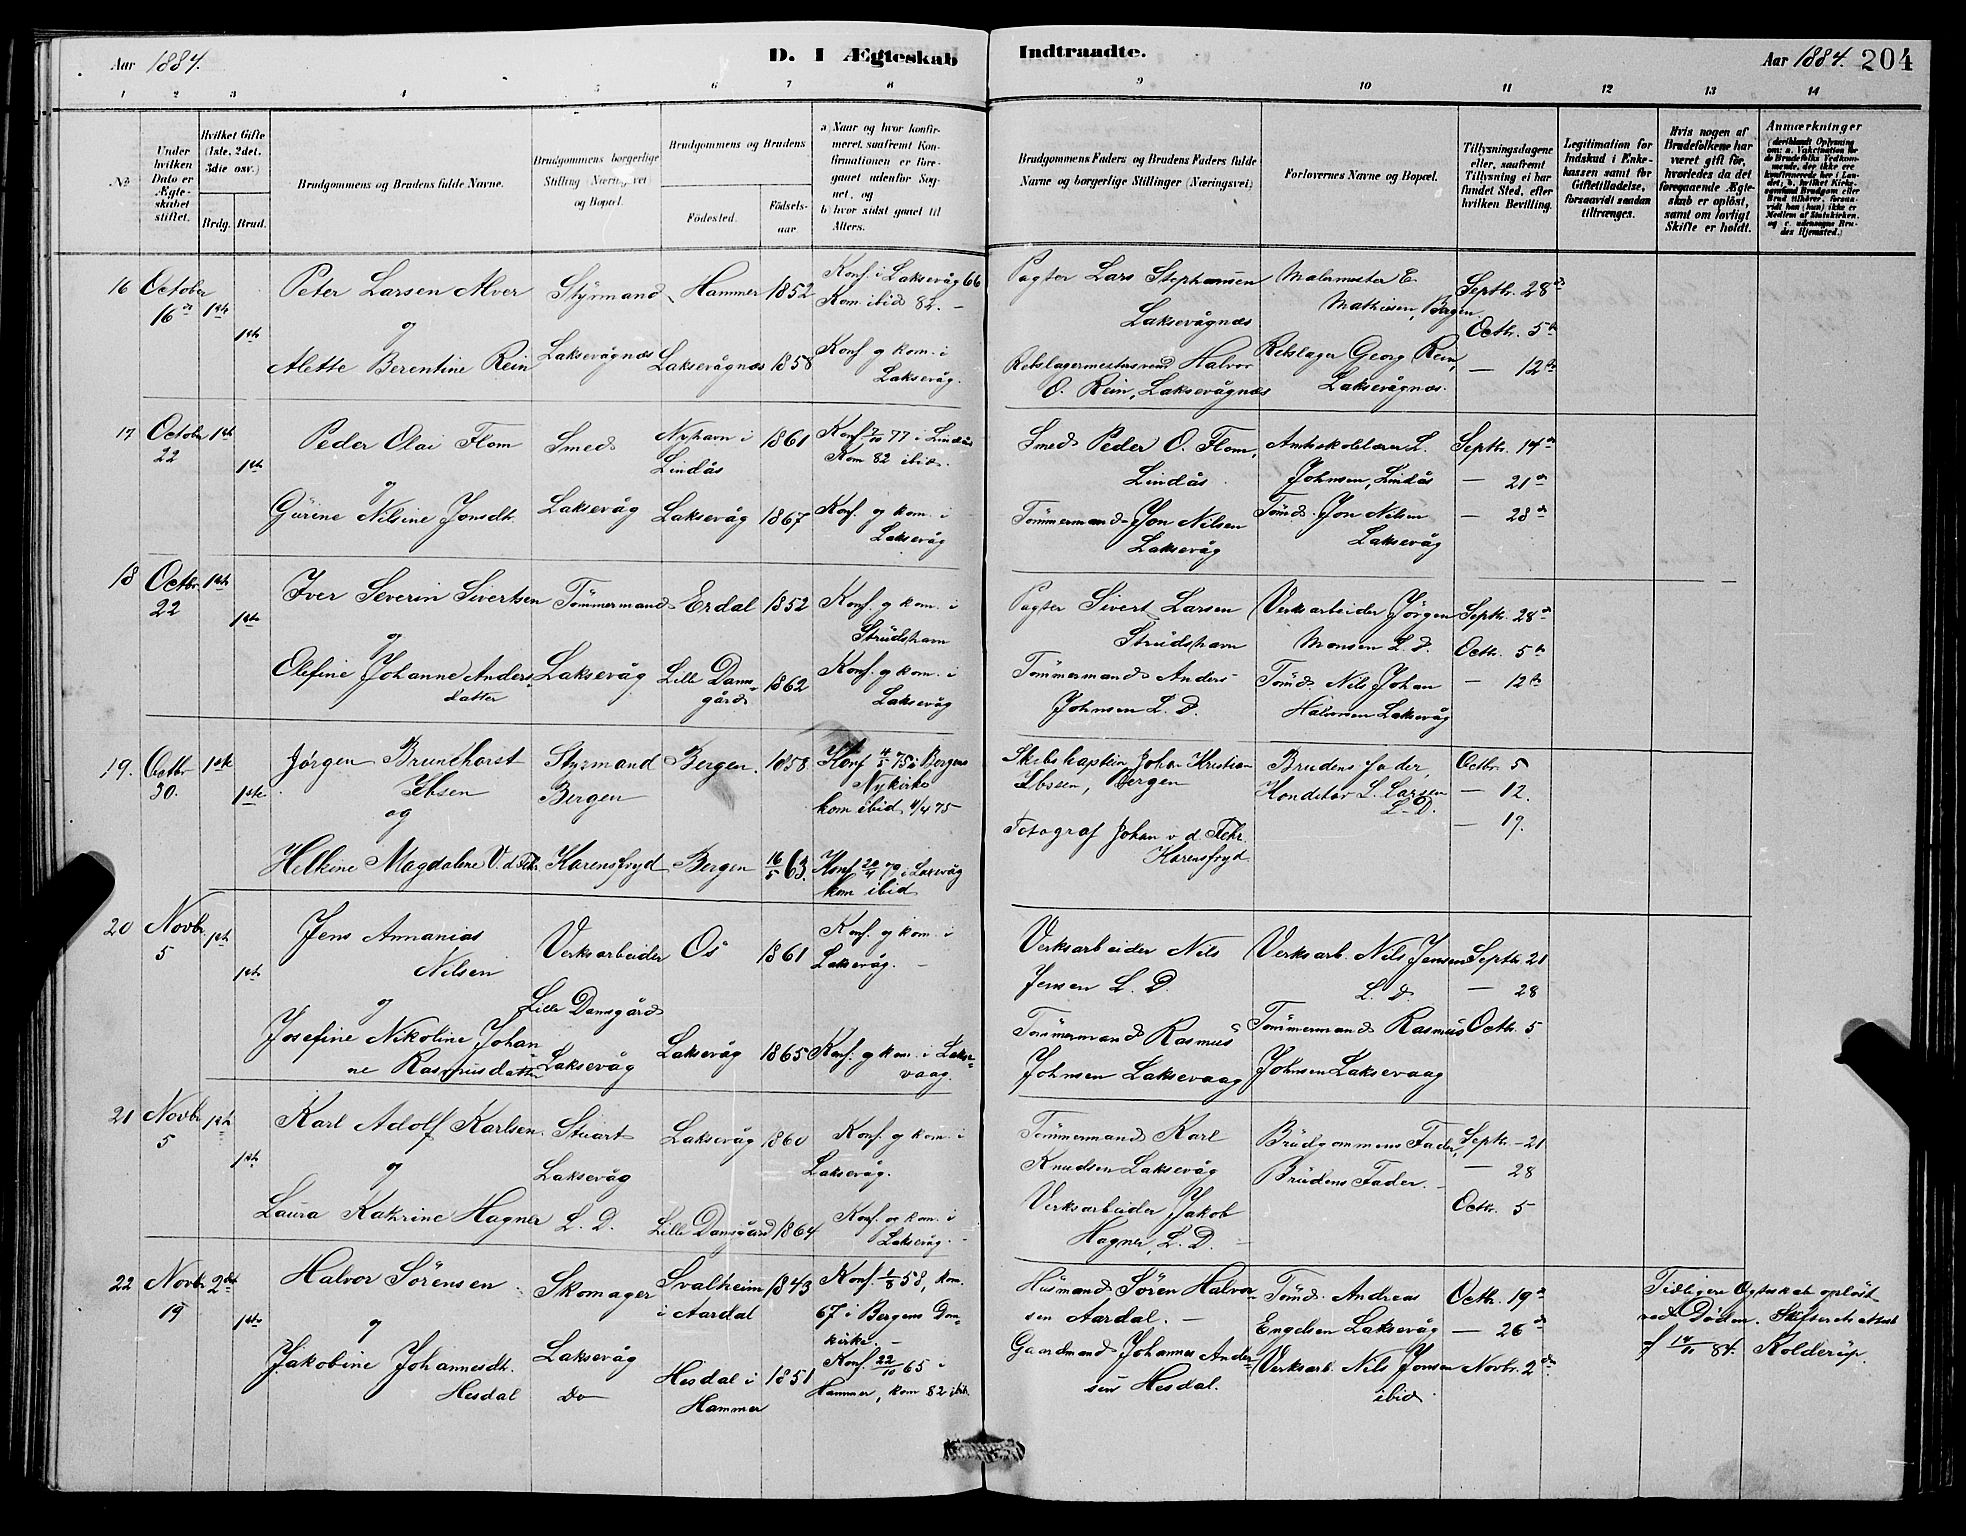 Aar 1884.
D. I Ægteskab Indtraadte.
Aar 1884. 204
1 2 3 4 5 6 7 8 9 10 11 12 13 14
No
Under hvilken Dato er Ægteskabet stiftet.
Hvilket Gifte (1ste, 2det, 3die osv.)
Brdg. Brud.
Brudgommens og Brudens fulde Navne.
Brudgommens borgerlige Stilling (Næringsvei) og Bopæl.
Brudgommens og Brudens
Fødested.
Fødselsaar.
a) Naar og hvor konfirmeret, saafremt Konfirmationen er foregaaet udenfor Sognet, og
b) hvor sidst gaaet til Alters.
Brudgommens Faders og Brudens Faders fulde Navne og borgerlige Stillinger (Næringsvei)
Forlovernes Navne og Bopæl.
Tillysningsdagene eller, saafremt Tillysning ei har fundet Sted, efter hvilken Bevilling.
Legitimation for Indskud i Enkekassen samt for Giftetilladelse, forsaavidt saadan tiltrænges.
Hvis nogen af Brudefolkene har været gift før, hvorledes da det foregaaende Ægteskab er opløst, samt om lovligt Skifte er holdt.
Anmærkninger
16 October 16de 1ste 1ste
Peter Larsen Alver
og
Alette Berentine Rein
Styrmand
Laksevågnæs
Hammer 1852
Laksevågnæs 1858
Konf. i Laksevåg 66
Kom ibid 82.
Konf og kom. i
Laksevåg.
Pagter Lars Stephansen
Laksevågnæs
Rebslagermestersvend Halvor
O. Rein, Laksevågnæs
Malermester E.
Mathiesen, Bergen
Rebslager Georg Rein,
Laksevågnæs.
Septbr. 28de
Octbr. 5te
— 12te
17 October 22 1ste 1ste
Peder Olai Flom
og
Gurine Nilsine Jonsdtr.
Smed
Laksevåg
Nyhavn i
Lindås 1861
Laksevåg 1867
Konf 7/10 77 i Lindås
Kom 82 ibid.
Konf. og kom. i
Laksevåg
Smed Peder O. Flom,
Lindås
Tømmermand Jon Nilsen
Laksevåg
Amtskolelærer L.
Johnsen, Lindås
Tømd. Jon Nilsen
Laksevåg
Septbr. 14de
— 21de
— 28de
18 Octbr. 22 1ste 1ste
Iver Severin Sivertsen
og
Olefine Johanne Anders-
datter
Tømmermand
Laksevåg
Erdal 1852
Lille Dams-
gård 1862
Konf. og kom. i
Strudshavn
Konf. og kom. i
Laksevåg
Pagter Sivert Larsen
Strudshavn
Tømmermand Anders
Johnsen L. D.
Verksarbeider Jørgen
Monsen L. D.
Tømd. Nils Johan
Halvorsen Laksevåg
Septbr. 28de
Octbr. 5te
— 12te
19. Octbr 30. 1ste 1ste
Jørgen Brunchorst
Ibsen
og
Helkine Magdalene V. d. Fehr.
Styrmand
Bergen
Karensfryd
Bergen. 1858.
Bergen 16/5 63.
Konf 4/4 75 i Bergens
Nykirke
kom ibid 11/4 75
Konf 20/4 79 i Laksevåg
kom ibid
Skibskaptein Johan Kristian
Ibssen, Bergen
Fotograf Johan v. d. Fehr.
Karensfryd
Brudens fader,
Konditor L. Larsen
L. D.
Octbr. 5
— 12.
— 19.
20 Novbr. 5 1ste 1ste
Jens Annanias
Nilsen
og
Josefine Nikoline Johan
ne Rasmusdatter
Verksarbeider
Lille Damsgård
Laksevåg
Os 1861
Laksevåg 1865
Konf. og kom. i
Laksevåg.
Konf. og kom. i Lakse-
vaag.
Verksarbeider Nils
Jensen L. D.
Tømmermand Rasmus
Johnsen Laksevaag
Verksarb. Nils Jensen
L. D.
Tømmermand Rasmus
Johnsen Laksevaag
Septbr. 21
— 28
Octbr. 5
21 Novbr. 5 1ste 1ste
Karl Adolf Karlsen
og
Laura Kathrine Hagner
Stuart
Laksevåg
L. D.
Laksevåg 1860
Lille Damsgård 1864
Konf. og kom. i
Laksevåg.
Konf. og kom. i
Laksevåg.
Tømmermand Karl
Knudsen Laksevåg
Verksarbeider Jakob
Hagner, L. D.
Brudgommens Fader,
Brudens Fader.
Septbr. 21
— 28
Octbr. 5
22 Novbr 19 2det 1ste
Halvor Sørensen
og
Jakobine Johannesdt.
Hesdal
Skomager
Laksevåg
Do
Svalheim
i Aardal 1843
Hesdal i
Hammer 1851
Konf. 1/8 58, kom.
67 i Bergens Dom-
kirke.
Konf. 22/10 65 i
Hammer, kom 82 ibid.
Husmand Søren Halvor-
sen Aardal.
Gaardmand Johannes Ander
sen Hesdal.
Tømd. Andreas
Engelsen Laksevåg
Verksarb. Nils Jonsen
ibid.
Octbr. 19de
— 26de
Novbr. 2de
Tidligere Ægteskab opløst
ved Døden. Skifteretsattest
af 14/11 84. Kolderup.